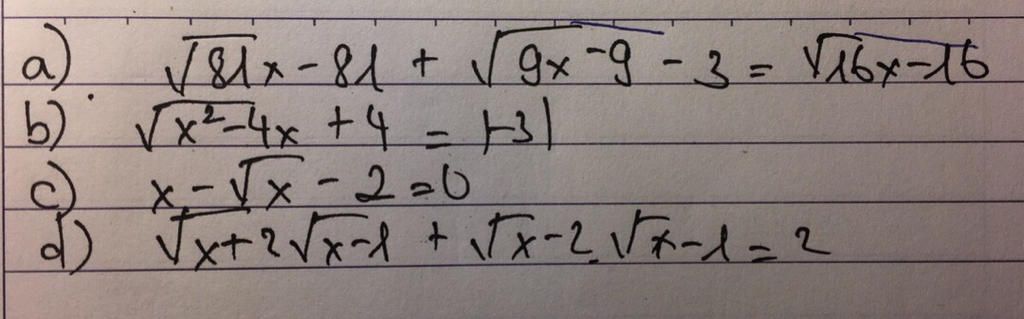 a) √81x - 81 + √9x - 9 - 3 = √16x - 16
b) √x² - 4x + 4 = |-3|
c) x - √x - 2 = 0
d) √x + 2√x - 1 + √x - 2.√x - 1 = 2